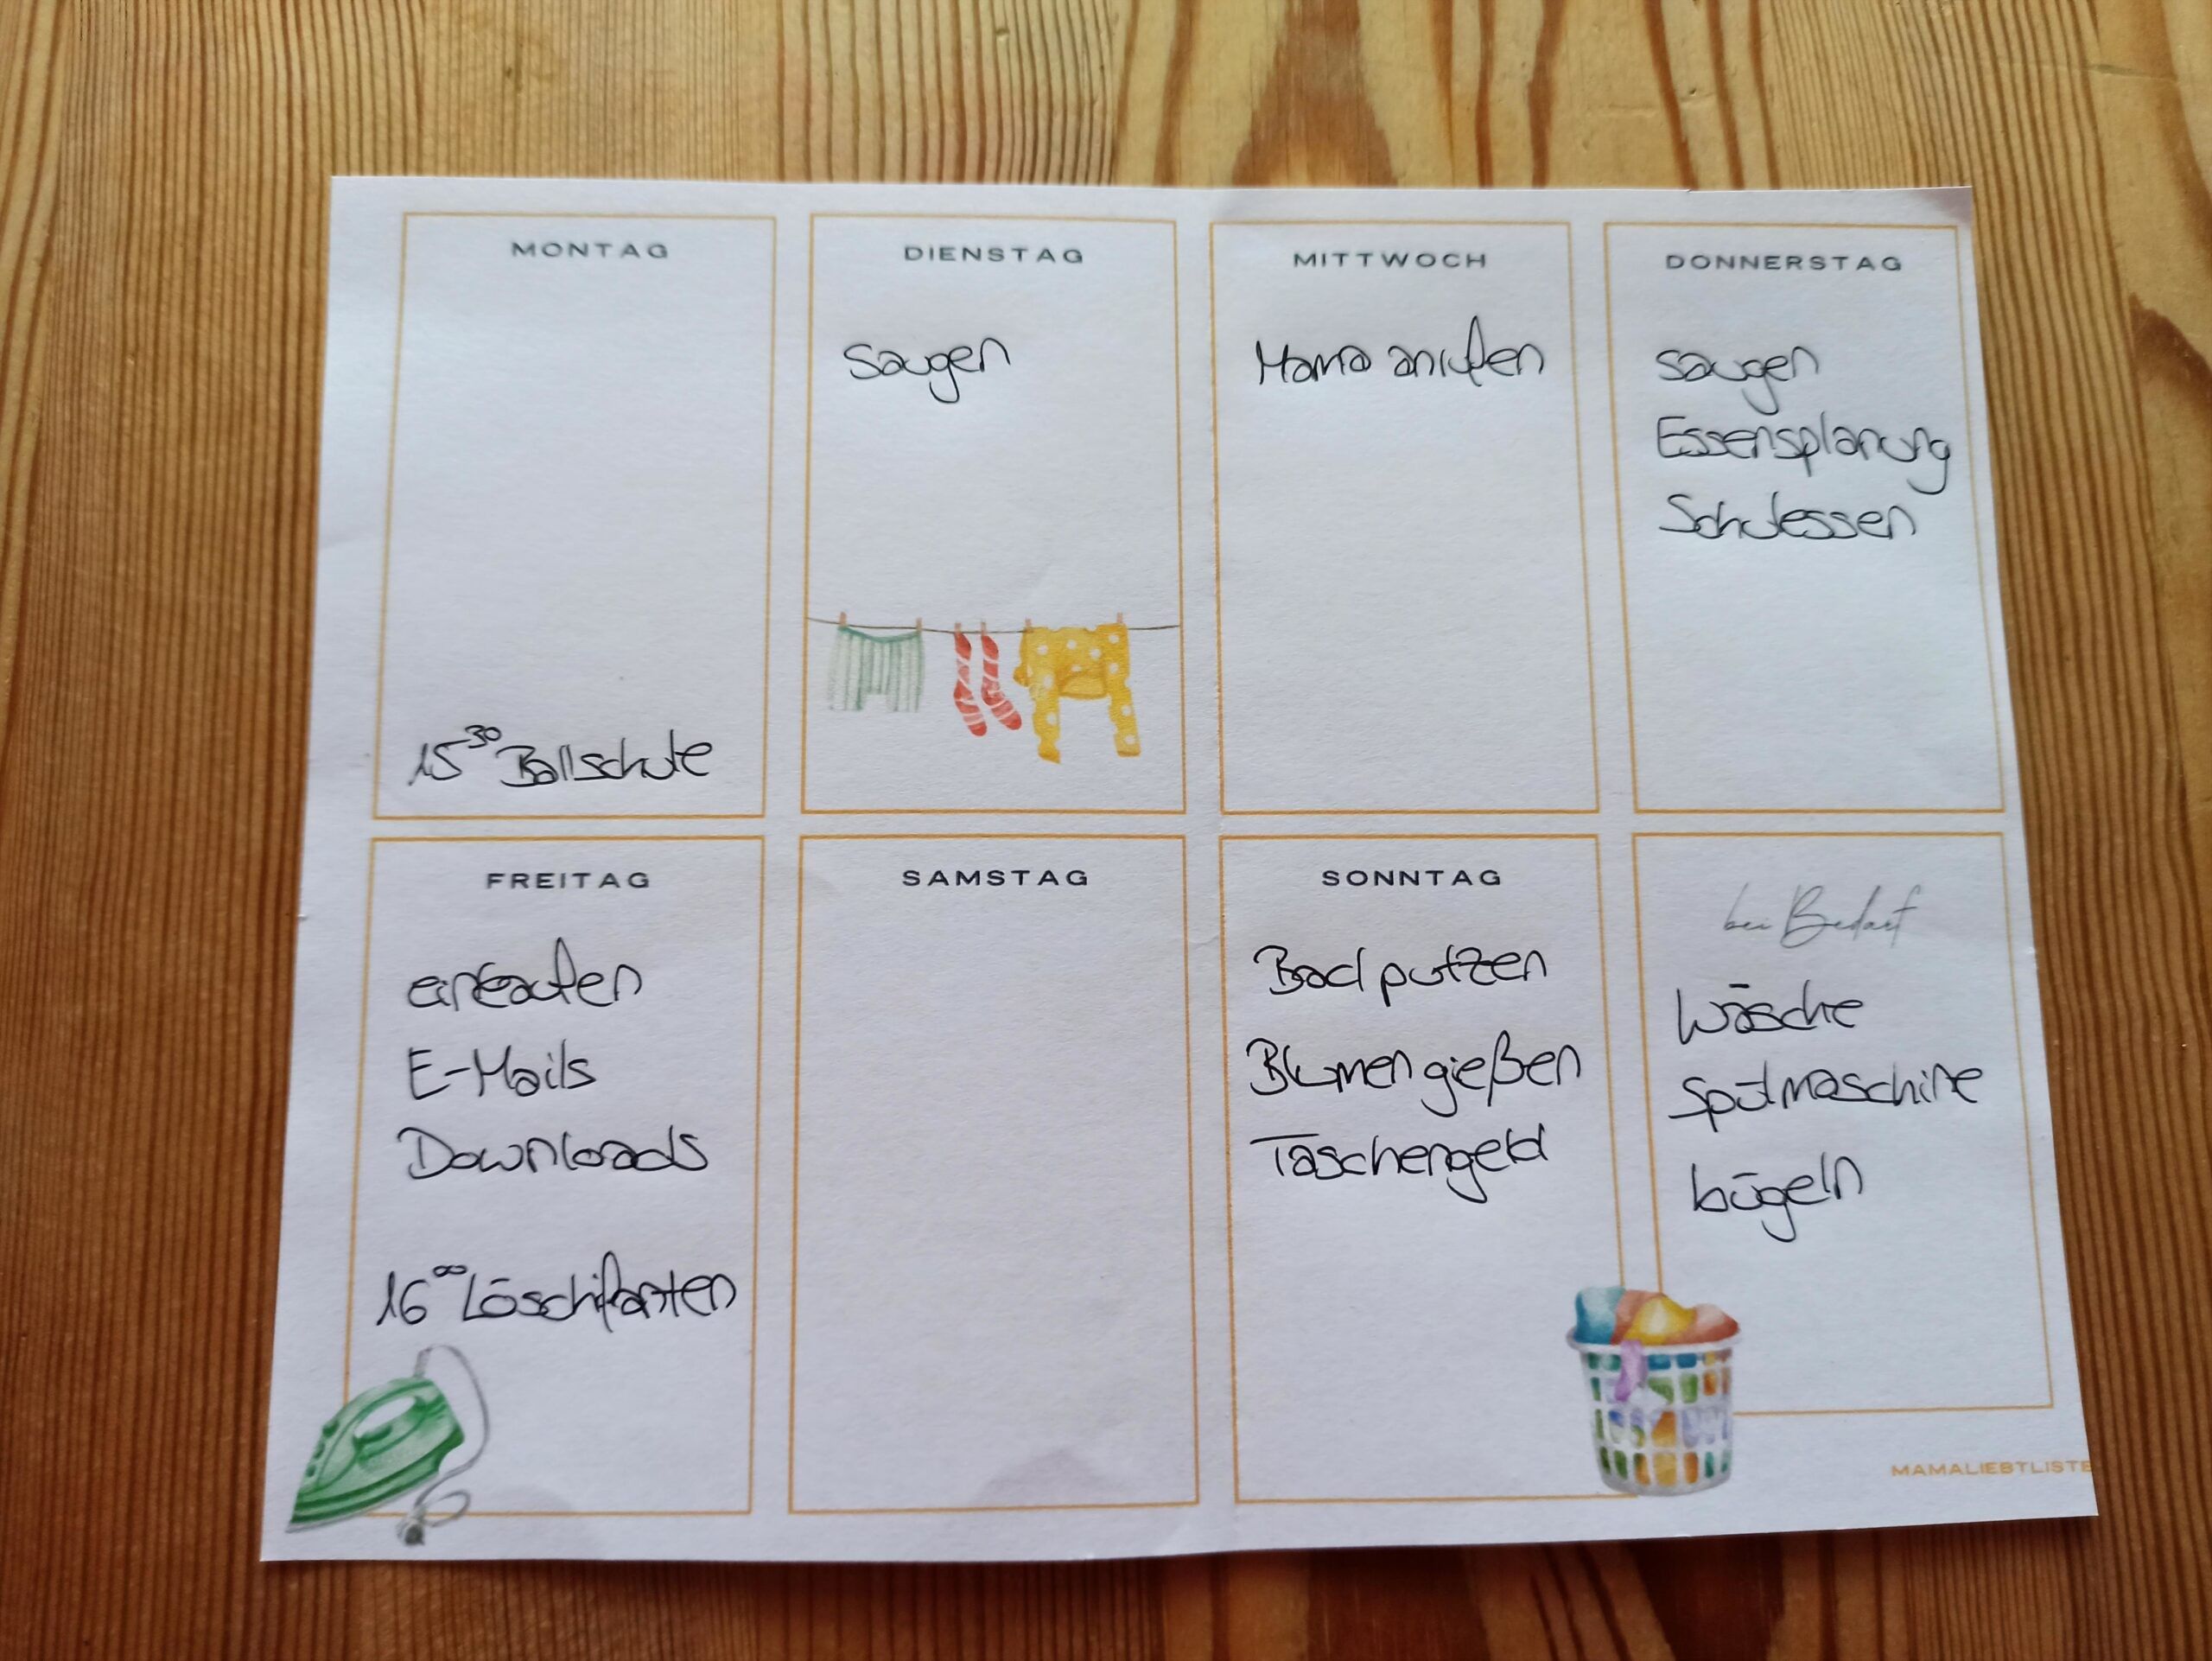 MONTAG
15³⁰ Ballschule
DIENSTAG
Saugen
MITTWOCH
Mama anrufen
DONNERSTAG
saugen
Essensplanung
Schulessen
FREITAG
einkaufen
E-Mails
Downloads
16⁰⁰ Löschifanten
SAMSTAG
SONNTAG
Bad putzen
Blumen gießen
Taschengeld
bei Bedarf
Wäsche
Spülmaschine
bügeln
MAMALIEBTLISTE